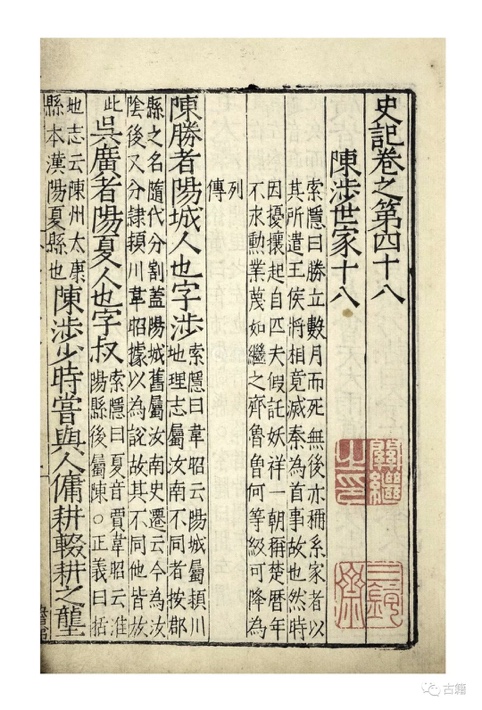 史記卷之第四十八
陳涉世家十八
索隱曰勝立數月而死無後亦稱系家者以
其所遣王侯將相竟滅秦為首事故也然時
因擾攘起自匹夫假託妖祥一朝稱楚曆年
不永勲業蔑如繼之齊魯曾何等級可降為
列
傳
陳勝者陽城人也字涉
索隱曰韋昭云陽城屬潁川
地理志屬汝南不同者按郡
縣之名隨代分割蓋陽城舊屬汝南史遷云今為汝
隂後又分隷潁川韋昭據以為說故其不同他皆放
此
吳廣者陽夏人也字叔
索隱曰夏音賈韋昭云淮
陽縣後屬陳○正義曰括
地志云陳州太康
縣本漢陽夏縣也
陳涉少時嘗與人傭耕輟耕之壟
古籍